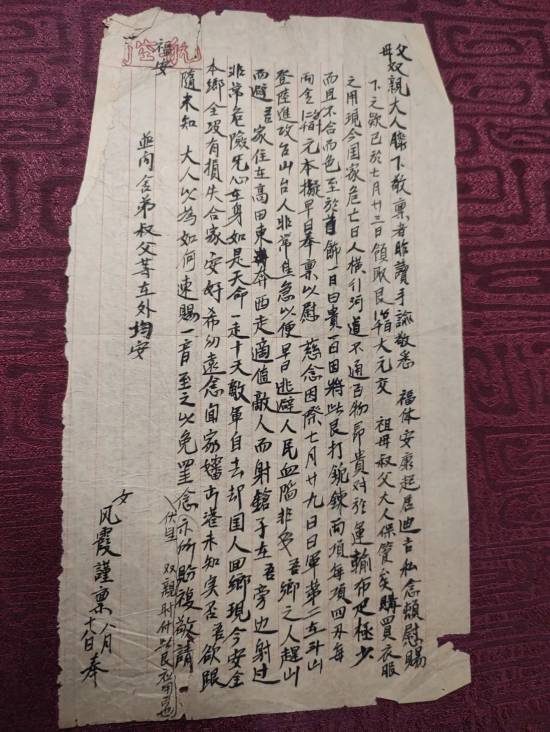 父母双親大人膝下敬稟者昨讀手諭敬悉 福体安康起居迪吉私念頗慰賜
下之欵已於七月廿三日領取艮大元交 祖母叔父大人保管矣購買衣服
之用現今国家危亡日人橫引河道不通百物昂貴对於運輸布疋極少
而且不合而色至於首飾一日曰貴一日因將此艮打鈪鍊両項每項四刄每
両元本擬早日奉稟以慰 慈念因際七月廿九日日軍第二左斗山
登陸進攻台山台人非常焦急以便早日逃避人民血陷非 吾鄉之人趕山
而避吾家住在高田東奔西走適值敵人而射鎗子在吾旁边射过
非常危險死心在身如是天命一走十天敵軍自去却国人回鄉現今安全
本鄉全没有損失合家安好希勿遠念闻家嬸港未知实否吾欲跟
隨未知 大人以為如何速賜一音至之以免罣念示所盼複敬請
福安
並向舍弟叔父等在外均安
伏望 双親附付些艮可也
女 风霞謹稟 八月十八日奉